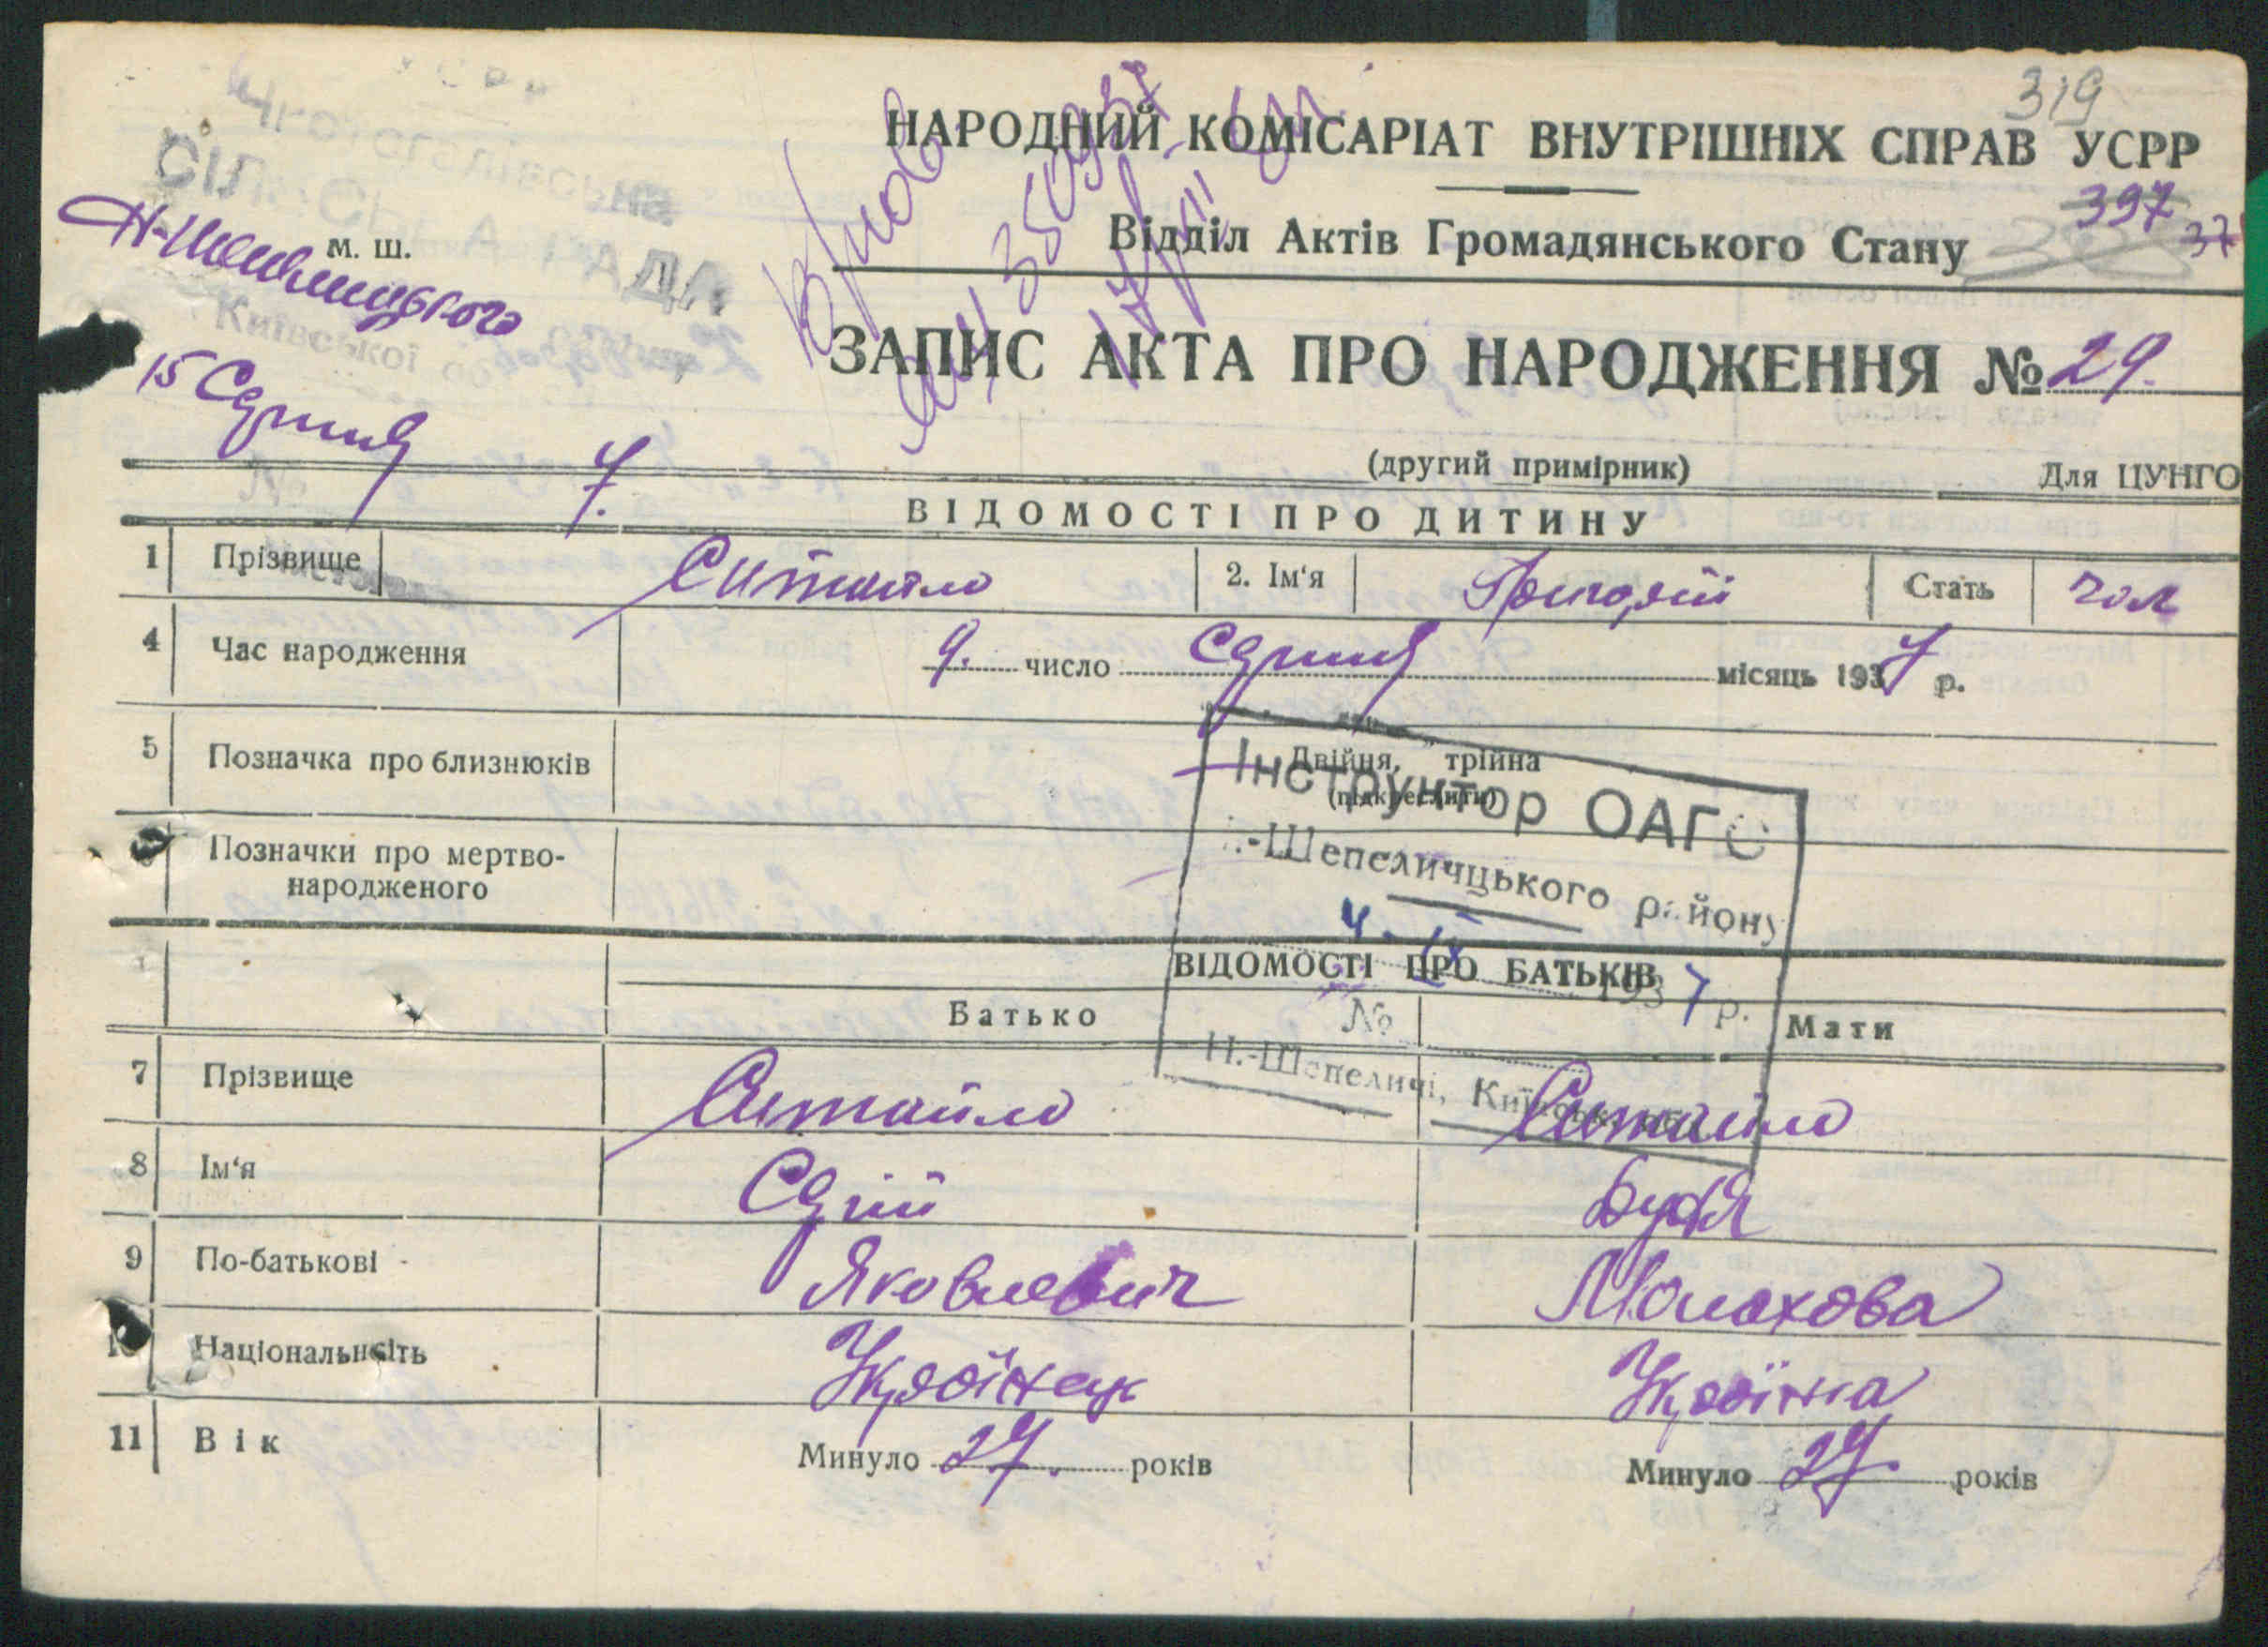 319
НАРОДНИЙ КОМІСАРІАТ ВНУТРІШНІХ СПРАВ УСРР
397
Відділ Актів Громадянського Стану
СІЛЬСЬКА РАДА
М. Ш.
Київської
ЗАПИС АКТА ПРО НАРОДЖЕННЯ № 29.
15 Серпня 7.
(другий примірник) Для ЦУНГО
ВІДОМОСТІ ПРО ДИТИНУ
1 Прізвище Ситайло 2. Ім'я Григорій Стать чол
4 Час народження 9. число Серпня місяць 1937 р.
5 Позначка про близнюків Двійня, трійня
(підкреслити)
Інструктор ОАГС
Н.-Шепеличцького району
Позначки про мертво-
народженого
4 - IX 1937 р.
ВІДОМОСТІ ПРО БАТЬКІВ
Батько Мати
№
Н.-Шепеличі,
7 Прізвище Ситайло Ситайло
8 Ім'я Сергій
9 По-батькові Яковлевич
10 Національність Українець Українка
11 Вік Минуло 27. років Минуло 27. років